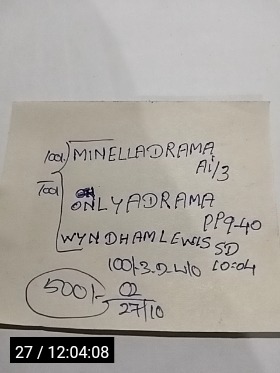 100/. MINELLADRAMA
Ai/3
700/.
ONLYADRAMA
PP9-40
WYNDHAMLEWIS SD
10:04
100/-3.2W/O
500/- 02
27/10
27 / 12:04:08